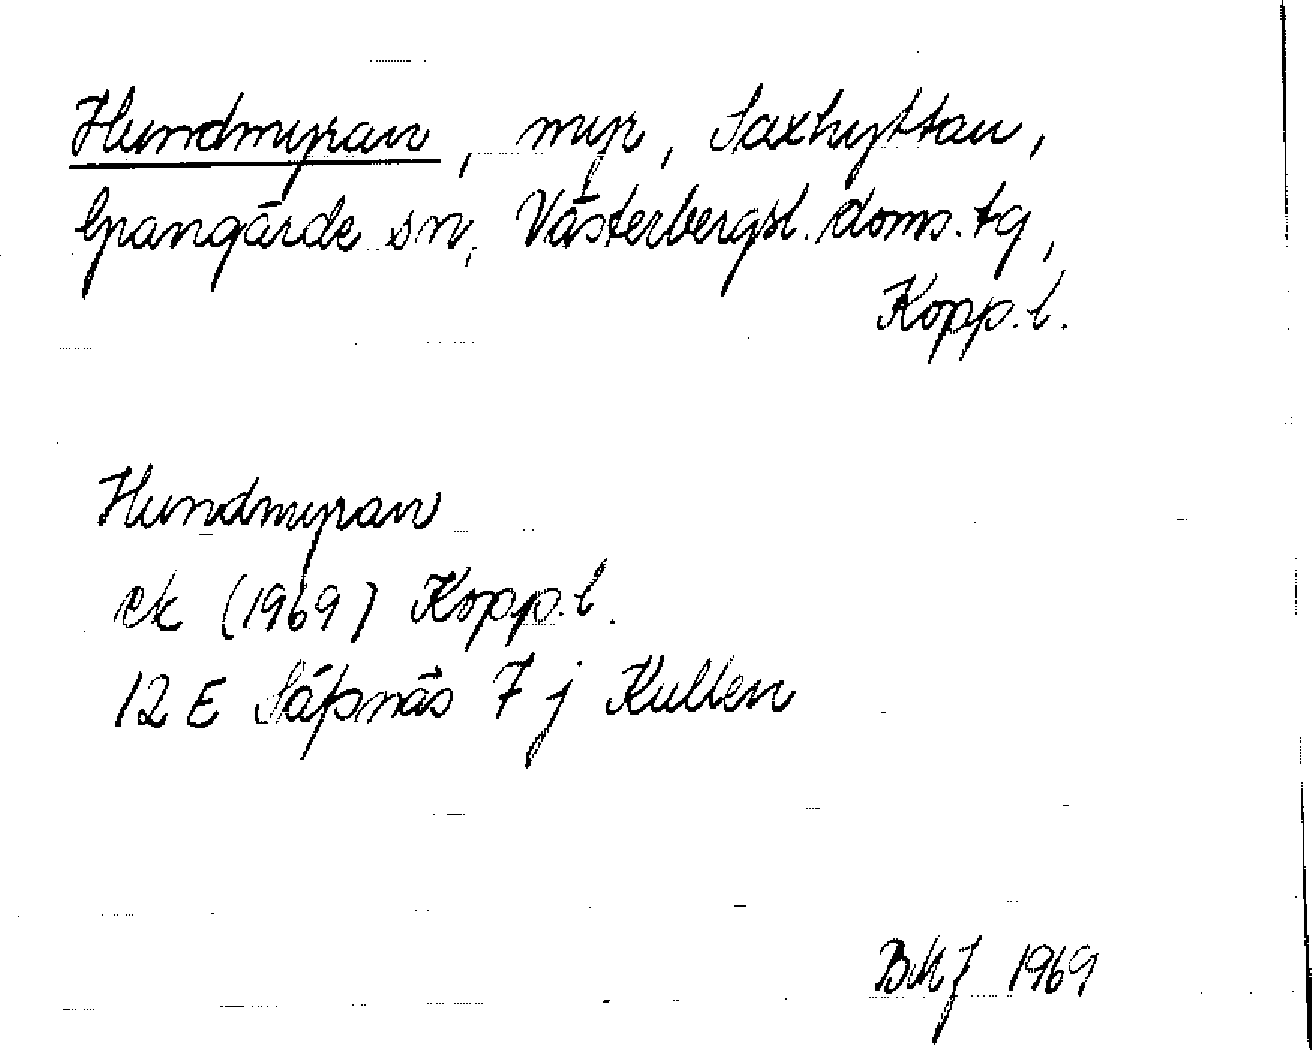 Hundmyran, myr, Saxhyttan,
Grangärde sn, Västerbergsl. doms. tg,
Kopp. l.
Hundmyran
ek (1969) Kopp. l.
12 E Säfsnäs 7 j Kullen
BMJ 1969